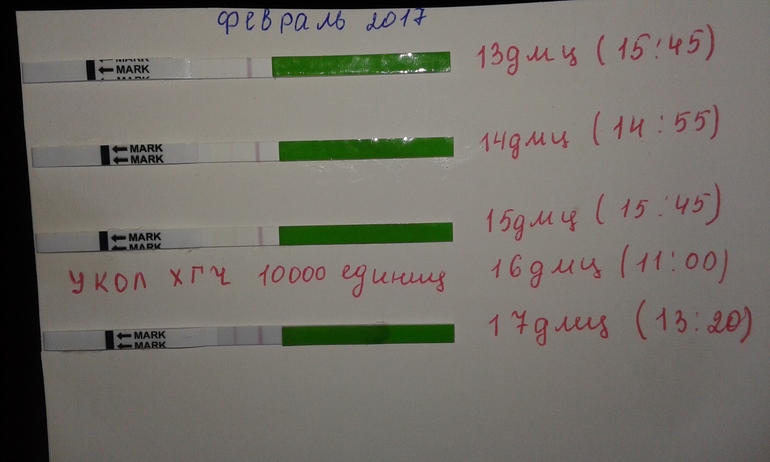 февраль 2017
MARK
MARK
13дмц (15:45)
MARK
MARK
14дмц (14:55)
MARK
MARK
15дмц (15:45)
укол хгч 10000 единиц 16дмц (11:00)
MARK
MARK
17дмц (13:20)